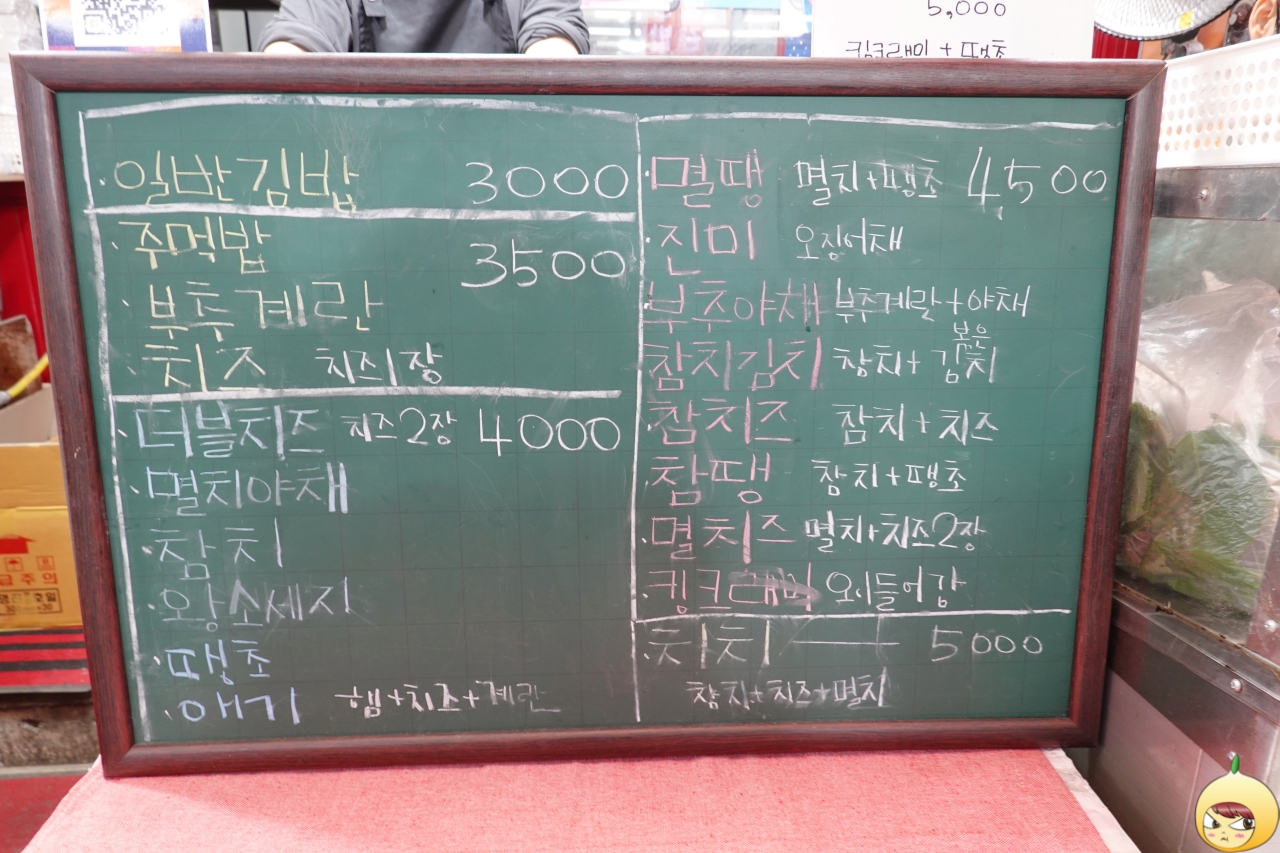 5,000
킹크래미 + 땡초
일반김밥 3000
주먹밥 3500
부추계란
치즈 치즈1장
더블치즈 치즈2장 4000
멸치야채
참치
왕소세지
땡초
애기 햄+치즈+계란
멸땡 멸치+땡초 4,500
진미 오징어채
부추야채 부추계란+야채
참치김치 참치+볶은김치
참치즈 참치+치즈
참땡 참치+땡초
멸치즈 멸치+치즈2장
킹크래미 오이들어감
5000
참치+치즈+멸치
급주의